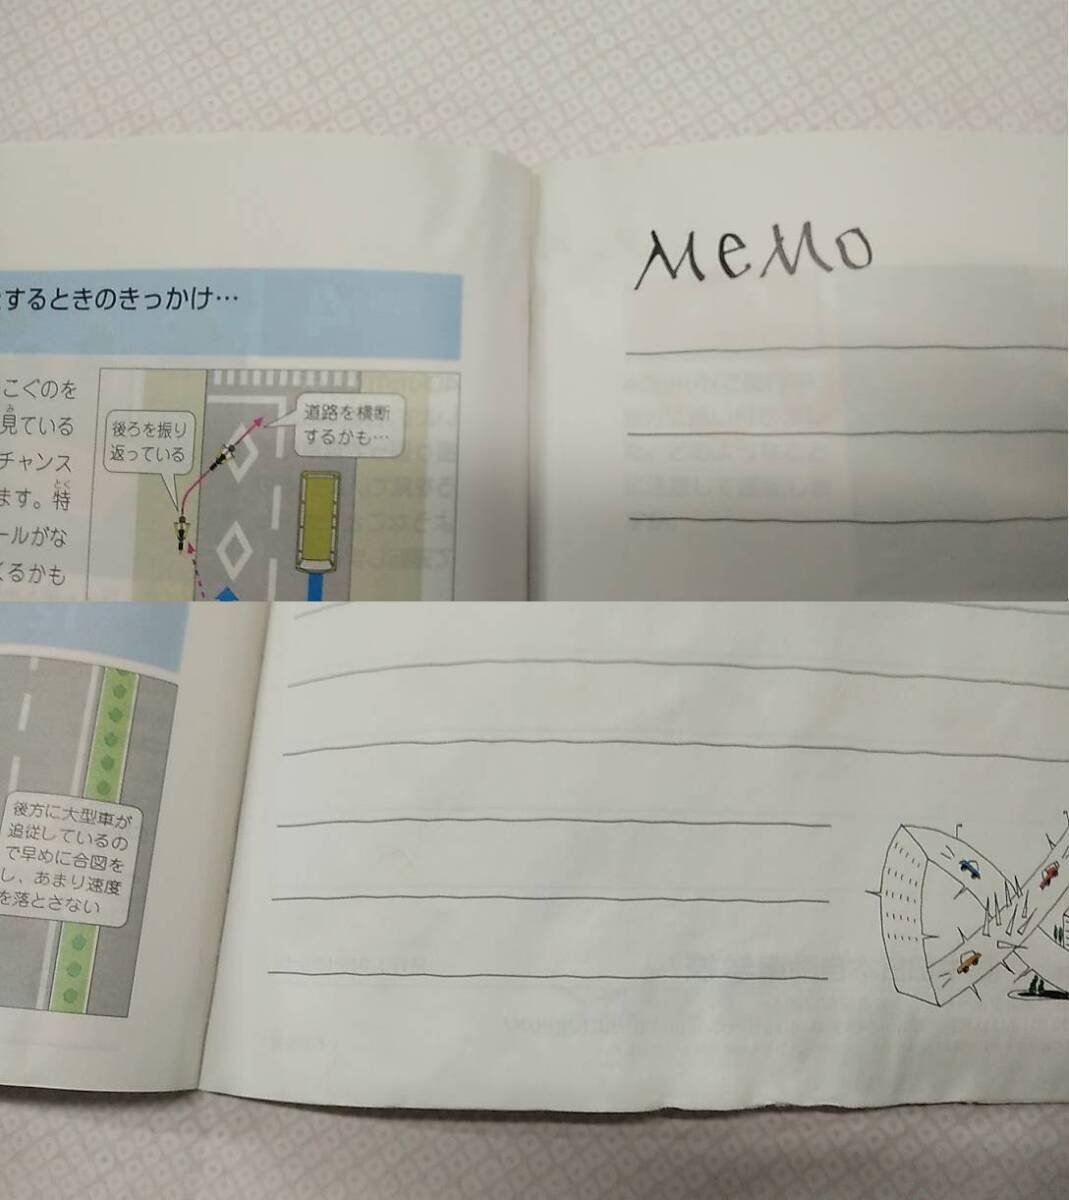 するときのきっかけ…
こぐのを
見ている
チャンス
ます。特
ールがな
くるかも
後ろを振り
返っている
道路を横断
するかも…
MeMo
後方に大型車が
追従しているの
で早めに合図を
し、あまり速度
を落とさない